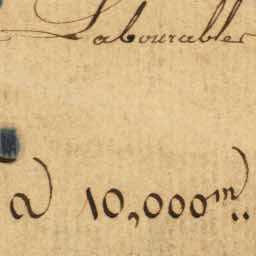 Labourables
a) 10,000m)..